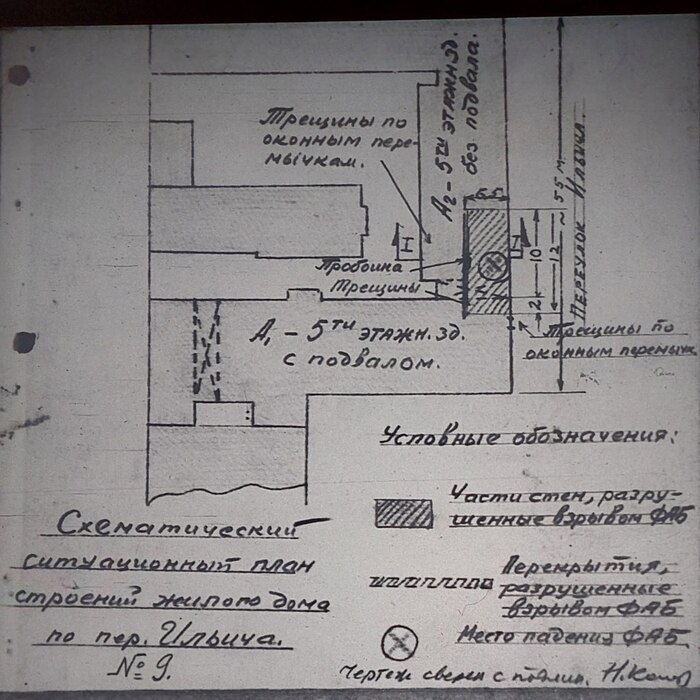 Трещины по
оконным пере-
мычкам.
А2 – 5ти этажн. зд.
без подвала.
6.5
I
I
10
12
2
~ 55 м.
Переулок Ильича.
Пробоина
Трещины
Трещины по
оконным перемычк
А1 – 5ти этажн. зд.
с подвалом.
Условные обозначения:
Части стен, разру-
шенные взрывом ФАБ
Перекрытия,
разрушенные
взрывом ФАБ
Место падения ФАБ
Схематический
ситуационный план
строений жилого дома
по пер. Ильича.
№ 9.
Чертеж сверен с подлин.